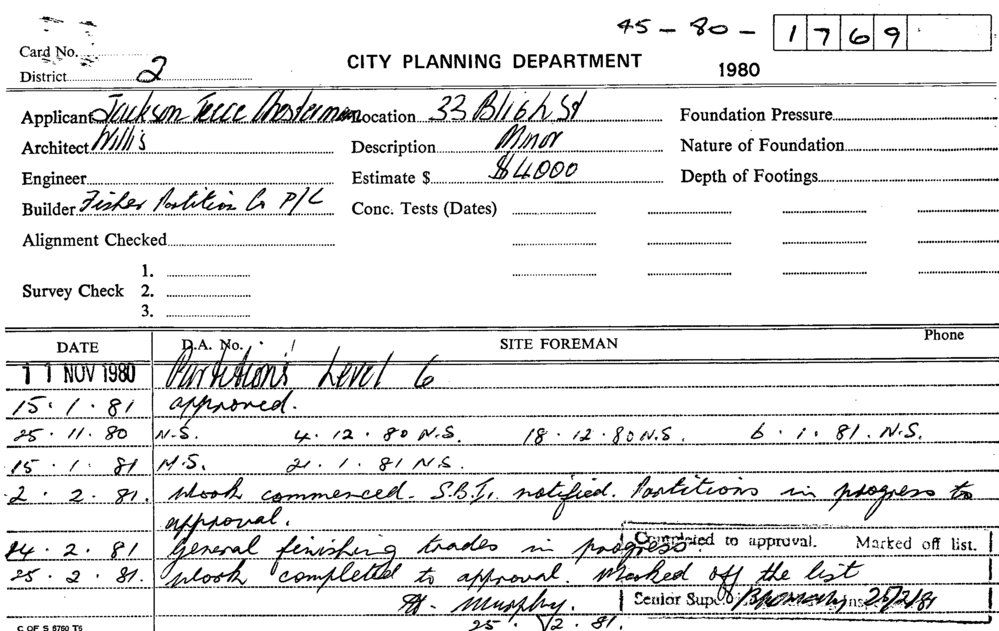 45 - 80 - 1769
Card No.
District 2
CITY PLANNING DEPARTMENT
1980
Applicant Jackson Teece Chesterman Location 33 Bligh St Foundation Pressure
Architect Willis Description Minor Nature of Foundation
Engineer Estimate $ $4000 Depth of Footings
Builder Fisher Partition Co P/L Conc. Tests (Dates)
Alignment Checked
1.
Survey Check 2.
3.
DATE D.A. No. SITE FOREMAN Phone
11 NOV 1980 Partitions Level 6
15.1.81 approved.
25.11.80 N.S. 4.12.80 N.S. 18.12.80 N.S. 6.1.81. N.S.
15.1.81 N.S. 21.1.81 N.S.
2.2.81. Work commenced. S.B.I. notified. Partitions in progress to
approval.
24.2.81 General finishing trades in progress. Completed to approval. Marked off list.
25.2.81. Work completed to approval. Marked off the list
Murphy. Senior Supt. 25/2/81
25.2.81.
C OF S 5760 T5